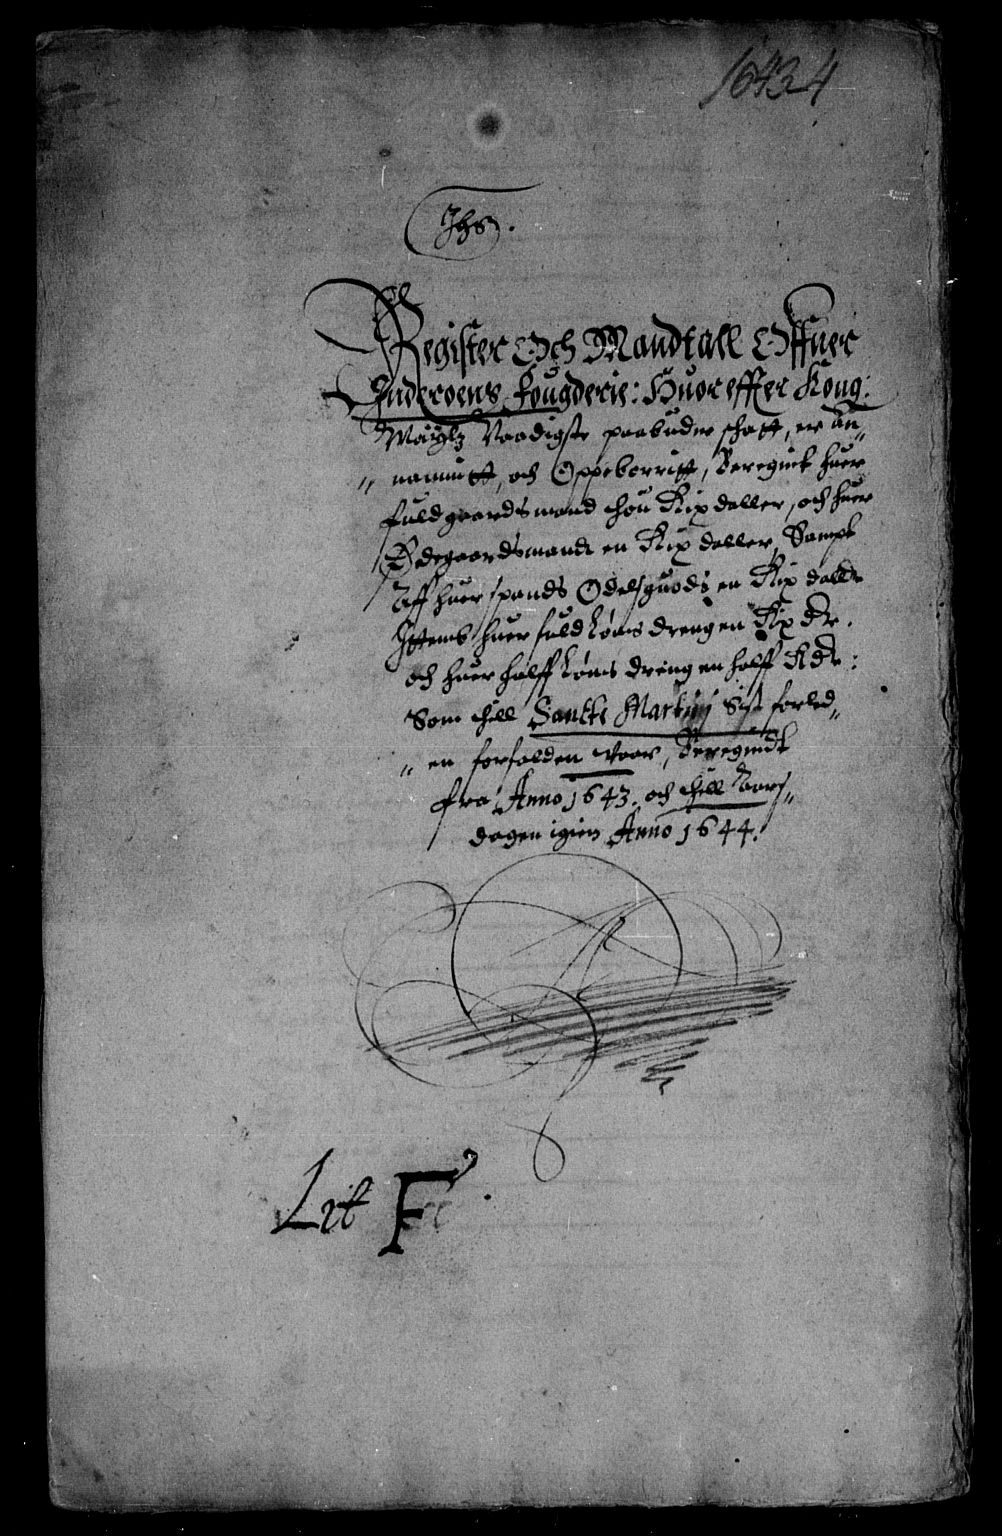 16434
Jhs.
Register Och Mandtall Offuer
Inderoens fougderie: Huorefter Kong:
Maÿtz Naadigste paabudne schatt, er An„
„ nammitt, och Oppeborritt, Beregnit huer
fuldgaardsmand thou Rix daller, och huer
Ødegaardsmand en Rix daller, Sampt
Aff huer spands Odelsguods en Rix daller
Ittemb huer fuld Løns dreng en Rix dr.
och huer halff Løns dreng en halff Rdr:
Som thill Sancte Martinj Sist forled„
„ en forfalden waar, Beregnidt
fra Anno 1643. och thill Aars„
dagen igien Anno 1644.
Lit F.